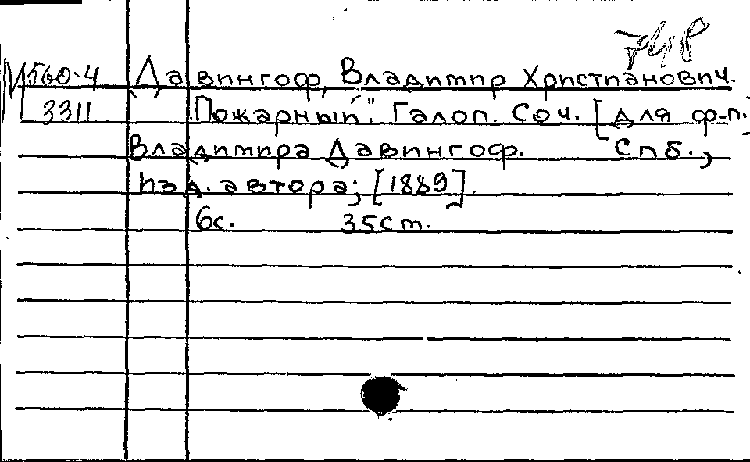 М560-4 Давингоф, Владимир Христианович.
3311 "Пожарный". Галоп. Соч. [для ф-п.]
Владимира Давингоф. Спб.,
изд. автора; [1889].
6с. 35см.